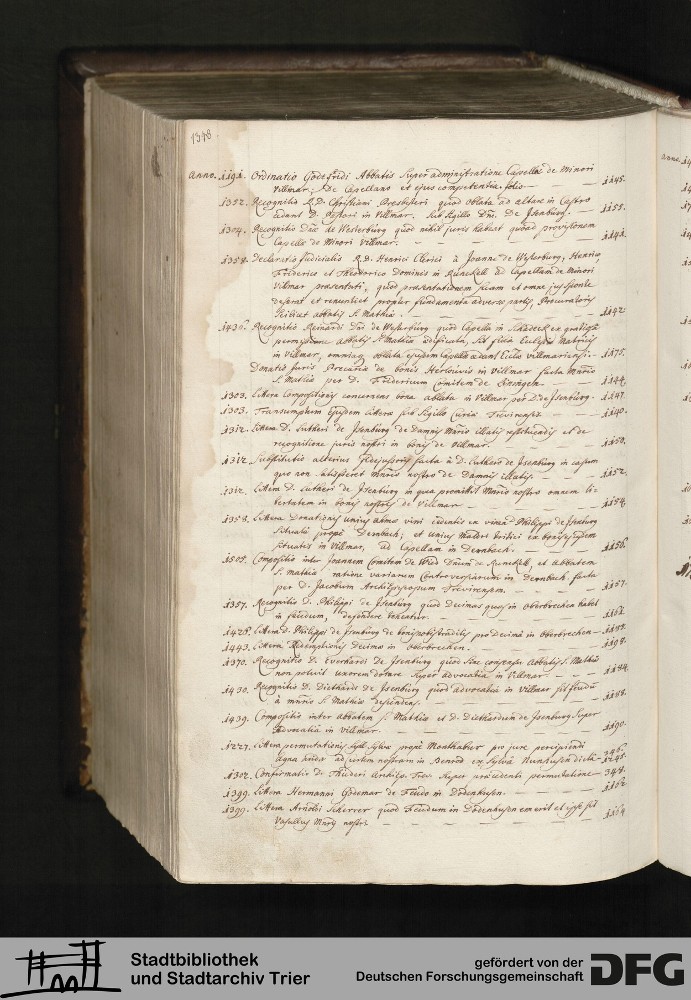 1348
Anno. 1191. Ordinatio Godefridi Abbatis super administratione Capellae de Minori
Villmar; De Capellano et ejus competentia. folio — 1145.
1352. Recognitio R.D. Christiani Presbyteri quod oblata ad altare in Castro
cedant D. Pastori in Villmar. sub sigillo Dni. de Isenburg. — 1155.
1304. Recognitio Dnae de Westerburg quod nihil juris habeat quoad provisionem
Capellae de Minori Villmar. — 1141.
1358. Declaratio Judicialis R.D. Henrici Clerici à Joanne de Westerburg, Henrico
Friderico et Theodorico Dominis in Runckell ad Capellam de Minori
Villmar praesentati, quod praesentationem suam et omne jus sponte
deserat et renunciet propter fundamenta adversae partis, Procuratoris
scilicet abbatis S. Mathiae. — 1142
1436. Recognitio Reinardi Dni de Westerburg quod Capella in Schadeck ex gratia
permissione abbatis S. Mathiae aedificata, sit filia Ecclesiae Matricis
in Villmar, omniaque oblata ejusdem Capellae cedant Ecclae villmariensi. — 1175.
Donatio Juris Precariae de bonis Herlouvis in Villmar facta Mnrio
S. Mathiae per D. Fridericum Comitem de Leiningen. — 1144
1303. Littera Compositionis concernens bona ablata in Villmar per D. de Isenburg. — 1147.
1303. Transumptum Ejusdem litterae sub sigillo Curiae Trevirensis. — 1140.
1312. Littera D. Lutheri de Isenburg de Damnis Mnrio illatis restituendis et de
recognitione juris nostri in bonis de Villmar. — 1150.
1312. Substitutio alterius Fidejussoris facta à D. Luthero de Isenburg in casum
quo non satisfieret mnrio nostro de Damnis illatis. — 1152
1312. Littera D. Lutheri de Isenburg in qua promittit Mnrio nostro omnem li-
bertatem in bonis nostris de Villmar — 1154.
1358. Littera Donationis unius ahmae vini cedentis ex vinea Philippi de Isenburg
situata prope Dernbach; et unius Maldri tritici ex bonis ejusdem
situatis in Villmar, ad Capellam in Dernbach. — 1156.
1505. Compositio inter Joannem Comitem de Wied Dnum de Runckell, et abbatem
S. Mathiae ratione variarum Controversiarum in Dernbach, facta
per D. Jacobum Archiepiscopum Trevirensem. — 1157.
1357. Recognitio D. Philippi de Isenburg quod decimas quas in Oberbrechen habet
in feudum, defendere teneatur. — 1161.
1428. Littera D. Philippi de Isenburg de bonis pro decima in Oberbrechen — 1188.
1443. Littera Redemptionis Decimae in oberbrechen. — 1198.
1370. Recognitio D. Everhardi de Isenburg quod sine consensu Abbatis S. Mathiae
non potuit uxorem dotare super advocatia in Villmar — 1184.
1430. Recognitio D. Diethardi de Isenburg quod advocatia in Villmar sit feudum
à mnrio S. Mathiae descendens. — 1188.
1439. Compositio inter abbatem S. Mathiae et D. Diethardum de Isenburg super
advocatia in villmar — 1190.
1227. Littera permutationis sylvae prope Monthabur pro jure percipiendi
ligna ad curtem nostram in Benrod ex sylva Nunhusen dicta — 346. 1245.
1302. Confirmatio D. Thideri Archiep. Trev. super praecedenti permutatione — 348.
1399. Littera Hermanni Godemar de Feudo in Dodenhusen. — 1162
1399. Littera Arnoldi Scherrer quod Feudum in Dodenhusen emerit et ipse sit
Vasallus Mnrij nostri — 1164
Anno.
Stadtbibliothek
und Stadtarchiv Trier
gefördert von der
Deutschen Forschungsgemeinschaft
DFG